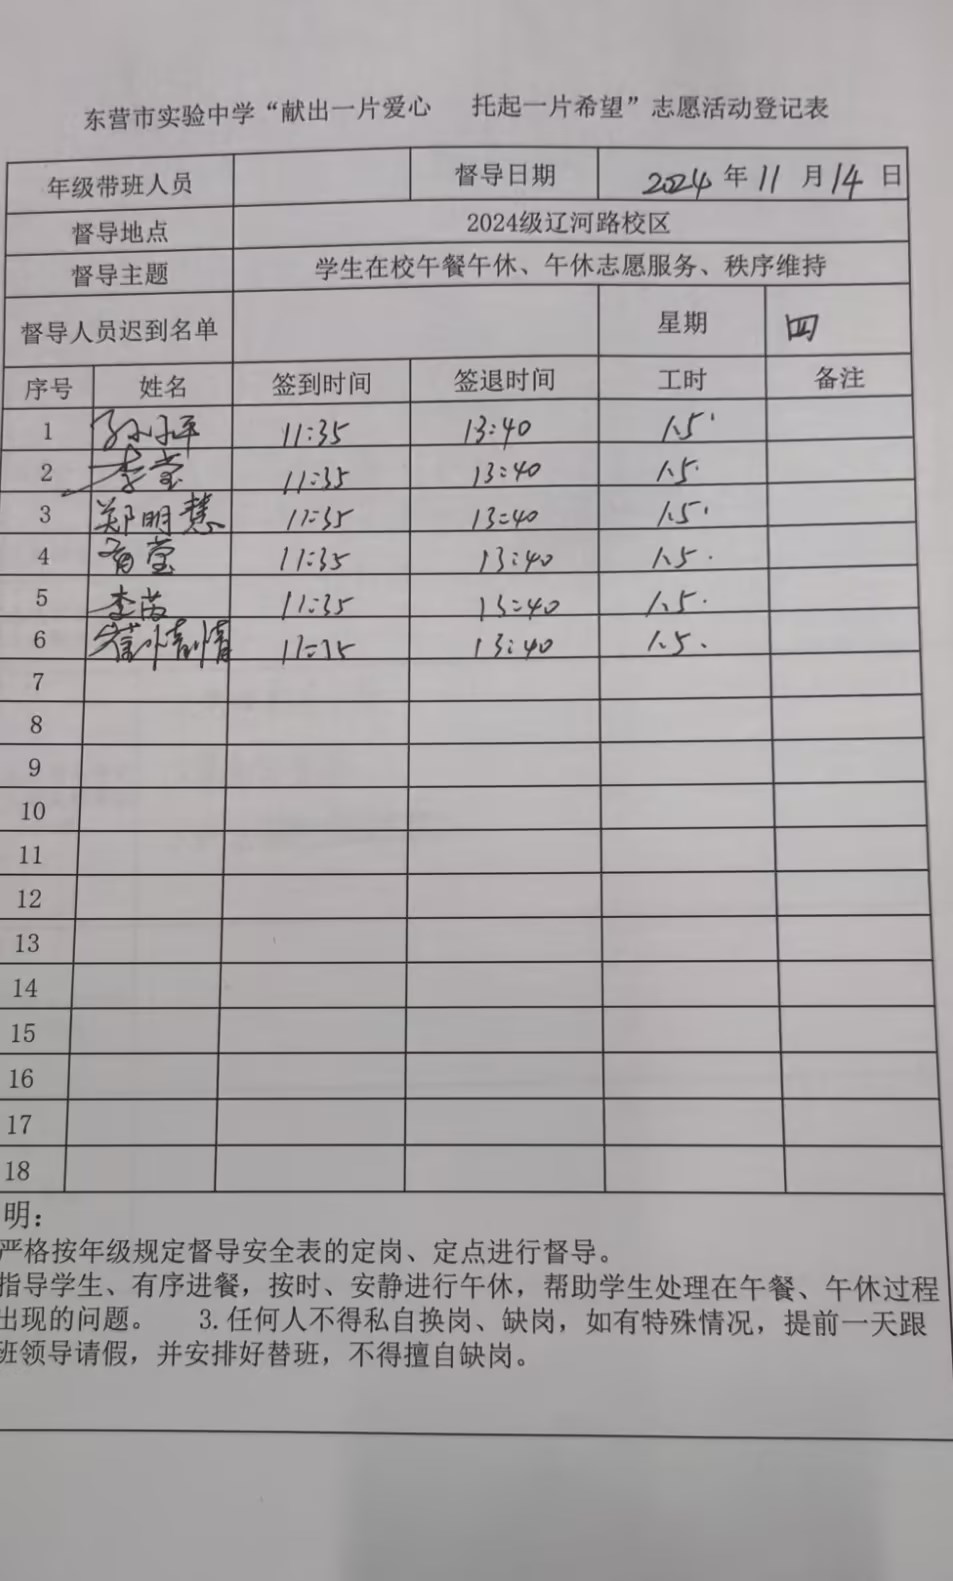 东营市实验中学“献出一片爱心 托起一片希望”志愿活动登记表
年级带班人员 督导日期 2024年11月14日
督导地点 2024级辽河路校区
督导主题 学生在校午餐午休、午休志愿服务、秩序维持
督导人员迟到名单 星期 四
序号 姓名 签到时间 签退时间 工时 备注
1 孙小平 11:35 13:40 1.5
2 李莹 11:35 13:40 1.5
3 郑明慧 11:35 13:40 1.5
4 莹 11:35 13:40 1.5
5 李茵 11:35 13:40 1.5
6 11:35 13:40 1.5
7
8
9
10
11
12
13
14
15
16
17
18
明：
严格按年级规定督导安全表的定岗、定点进行督导。
指导学生、有序进餐，按时、安静进行午休，帮助学生处理在午餐、午休过程
出现的问题。 3.任何人不得私自换岗、缺岗，如有特殊情况，提前一天跟
班领导请假，并安排好替班，不得擅自缺岗。